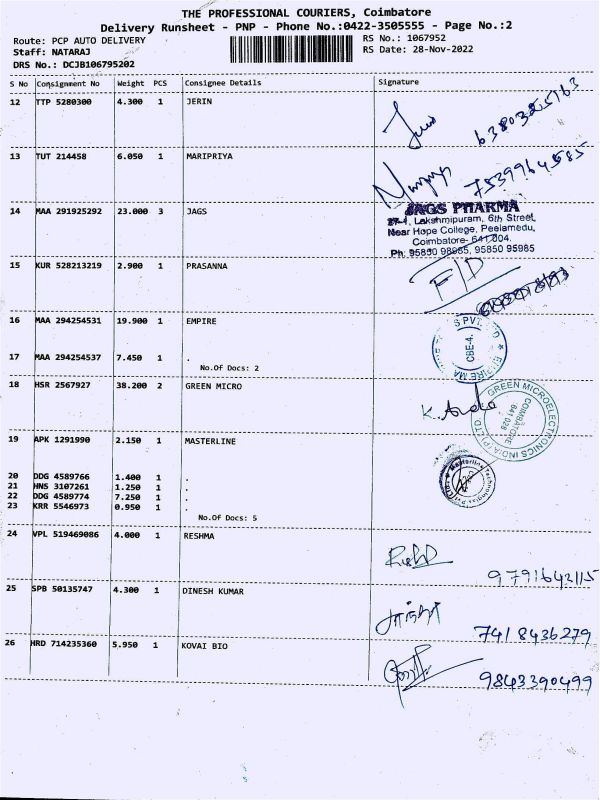 THE PROFESSIONAL COURIERS, Coimbatore
Delivery Runsheet - PNP - Phone No.:0422-3505555 - Page No.:2
Route: PCP AUTO DELIVERY RS No.: 1067952
Staff: NATARAJ RS Date: 28-Nov-2022
DRS No.: DCJB106795202
S No Consignment No Weight PCS Consignee Details Signature
12 TTP 5280300 4.300 1 JERIN
6380325163
13 TUT 214458 6.050 1 MARIPRIYA
7539964585
14 MAA 291925292 23.000 3 JAGS
JAGS PHARMA
27-1, Lakshmipuram, 6th Street,
Near Hope College, Peelamedu,
Coimbatore- 641 004.
Ph: 95850 98985, 95850 95985
15 KUR 528213219 2.900 1 PRASANNA
F/D
16 MAA 294254531 19.900 1 EMPIRE
S PVT.
CBE-4.
EMPIRE MA
17 MAA 294254537 7.450 1 .
No.Of Docs: 2
18 HSR 2567927 38.200 2 GREEN MICRO
GREEN MICROELECTRONICS INDIA (P) LTD
COIMBATORE
641 028
19 APK 1291990 2.150 1 MASTERLINE
Masterline Technologies
20 DDG 4589766 1.400 1 .
21 HNS 3107261 1.250 1 .
22 DDG 4589774 7.250 1 .
23 KRR 5546973 0.950 1 .
No.Of Docs: 5
24 VPL 519469086 4.000 1 RESHMA
9791642115
25 SPB 50135747 4.300 1 DINESH KUMAR
7418436279
26 HRD 714235360 5.950 1 KOVAI BIO
9843390499